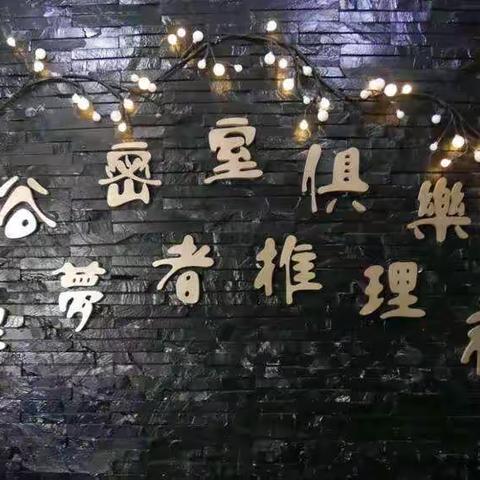 谷密室俱樂
夢者推理